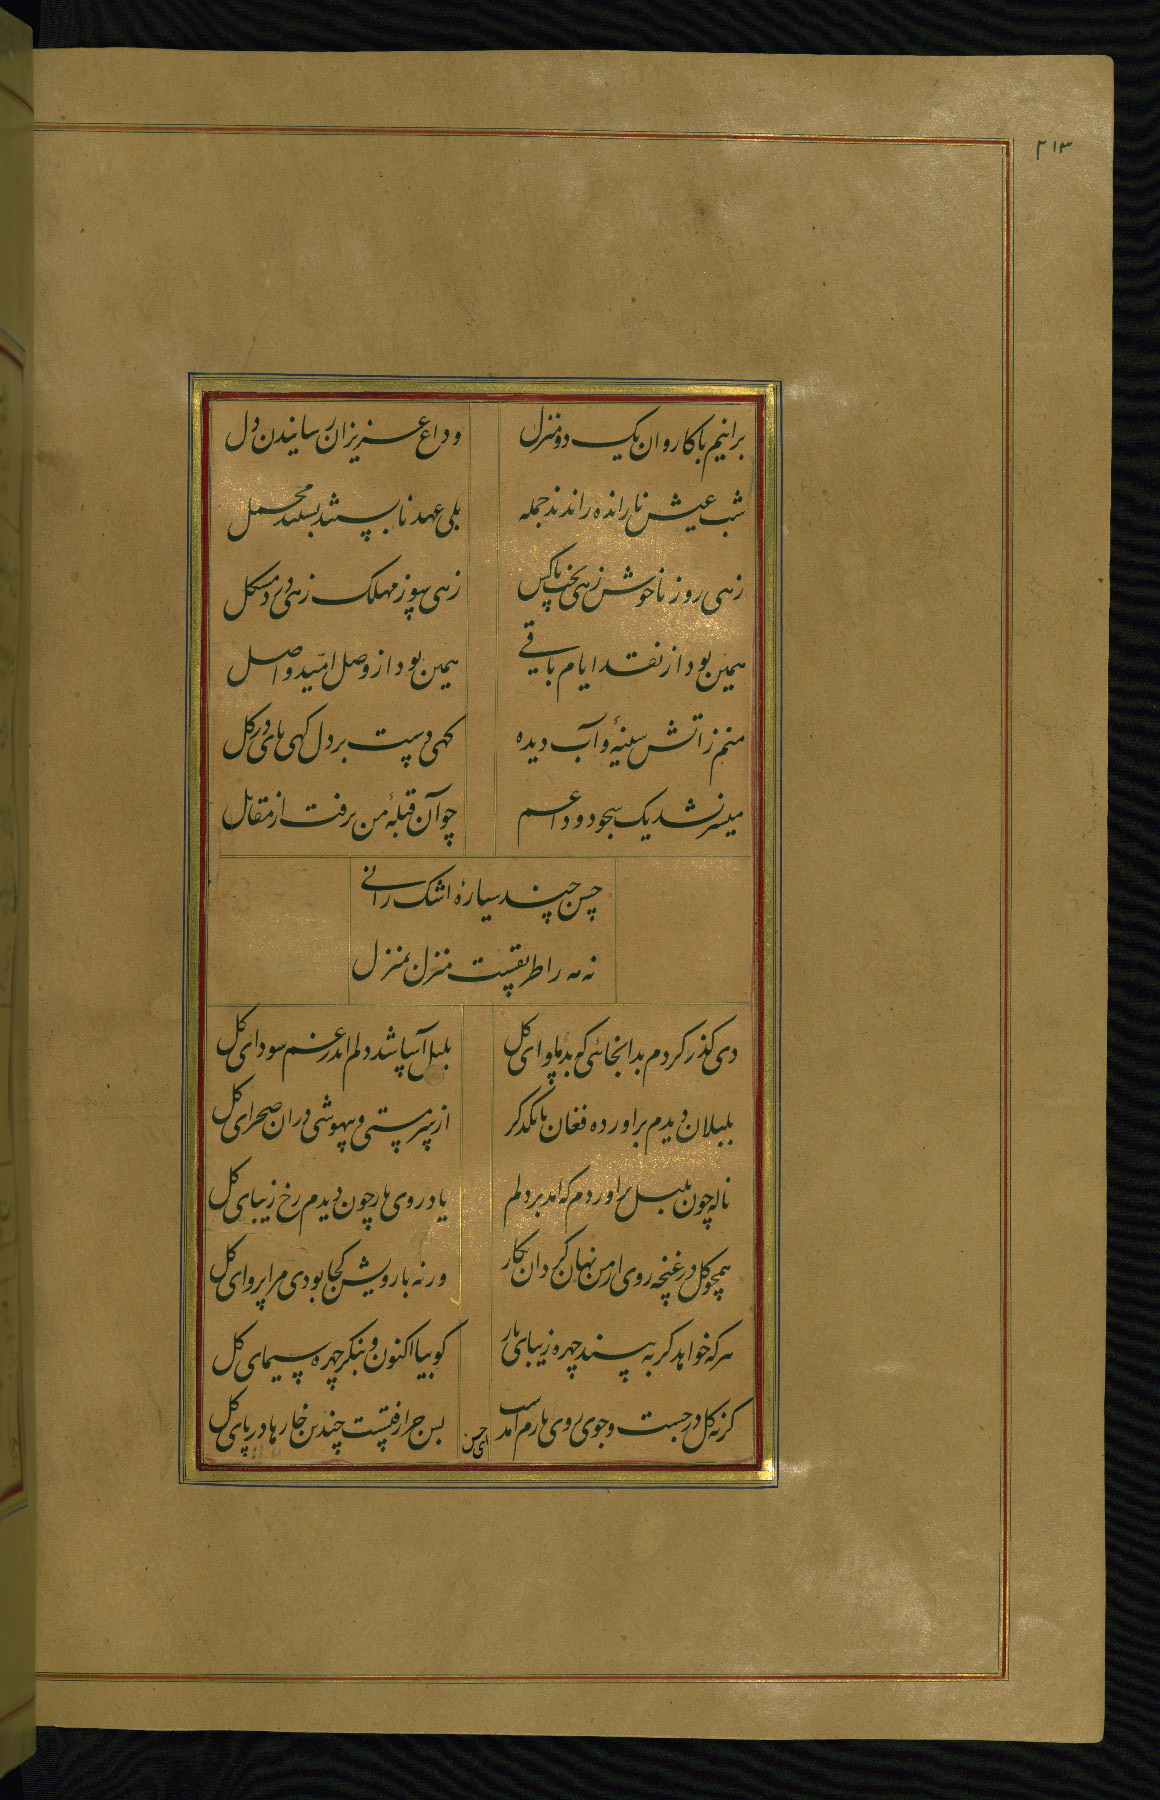 ۲۱۳
برانیم با کاروان یک دو منزل
وداع عزیزان رسانیدن دل
شب عیش نارانده راندند جمله
بلی عهد نابسته بستند محمل
زهی روز ناخوش زهی بخت ناکس
زهی سوز مهلک زهی درد مشکل
همین بود از نقد ایام باقی
همین بود از وصل امید واصل
منم ز اتش سینهٔ و آب دیده
کهی دست بر دل کهی پای در کل
میسر نشد یک سجود وداعم
چو آن قبلهٔ من برفت از مقابل
حسن چند سیارهٔ اشک رانی
نه مه را طریقست منزل بمنزل
دی کذر کردم بدانجائی که بد ماوای کل
بلبل آسا شد دلم اندر غم سودای کل
بلبلان دیدم براورده فغان با یکدکر
از سر مستی و بیهوشی دران صحرای کل
ناله چون بلبل براوردم که امد بر دلم
یاد روی یار چون دیدم رخ زیبای کل
همچو کل در غنچه روی از من نهان کرد آن نکار
ورنه با رویش کجا بودی مرا پروای کل
هر که خواهد کر به بیند چهره زیبای یار
کو بیا اکنون و بنکر چهره سیمای کل
کرنه کل در جست و جوی روی یارم آمدست
ای حسن
بس چرا رفتست چندین خارها در پای کل